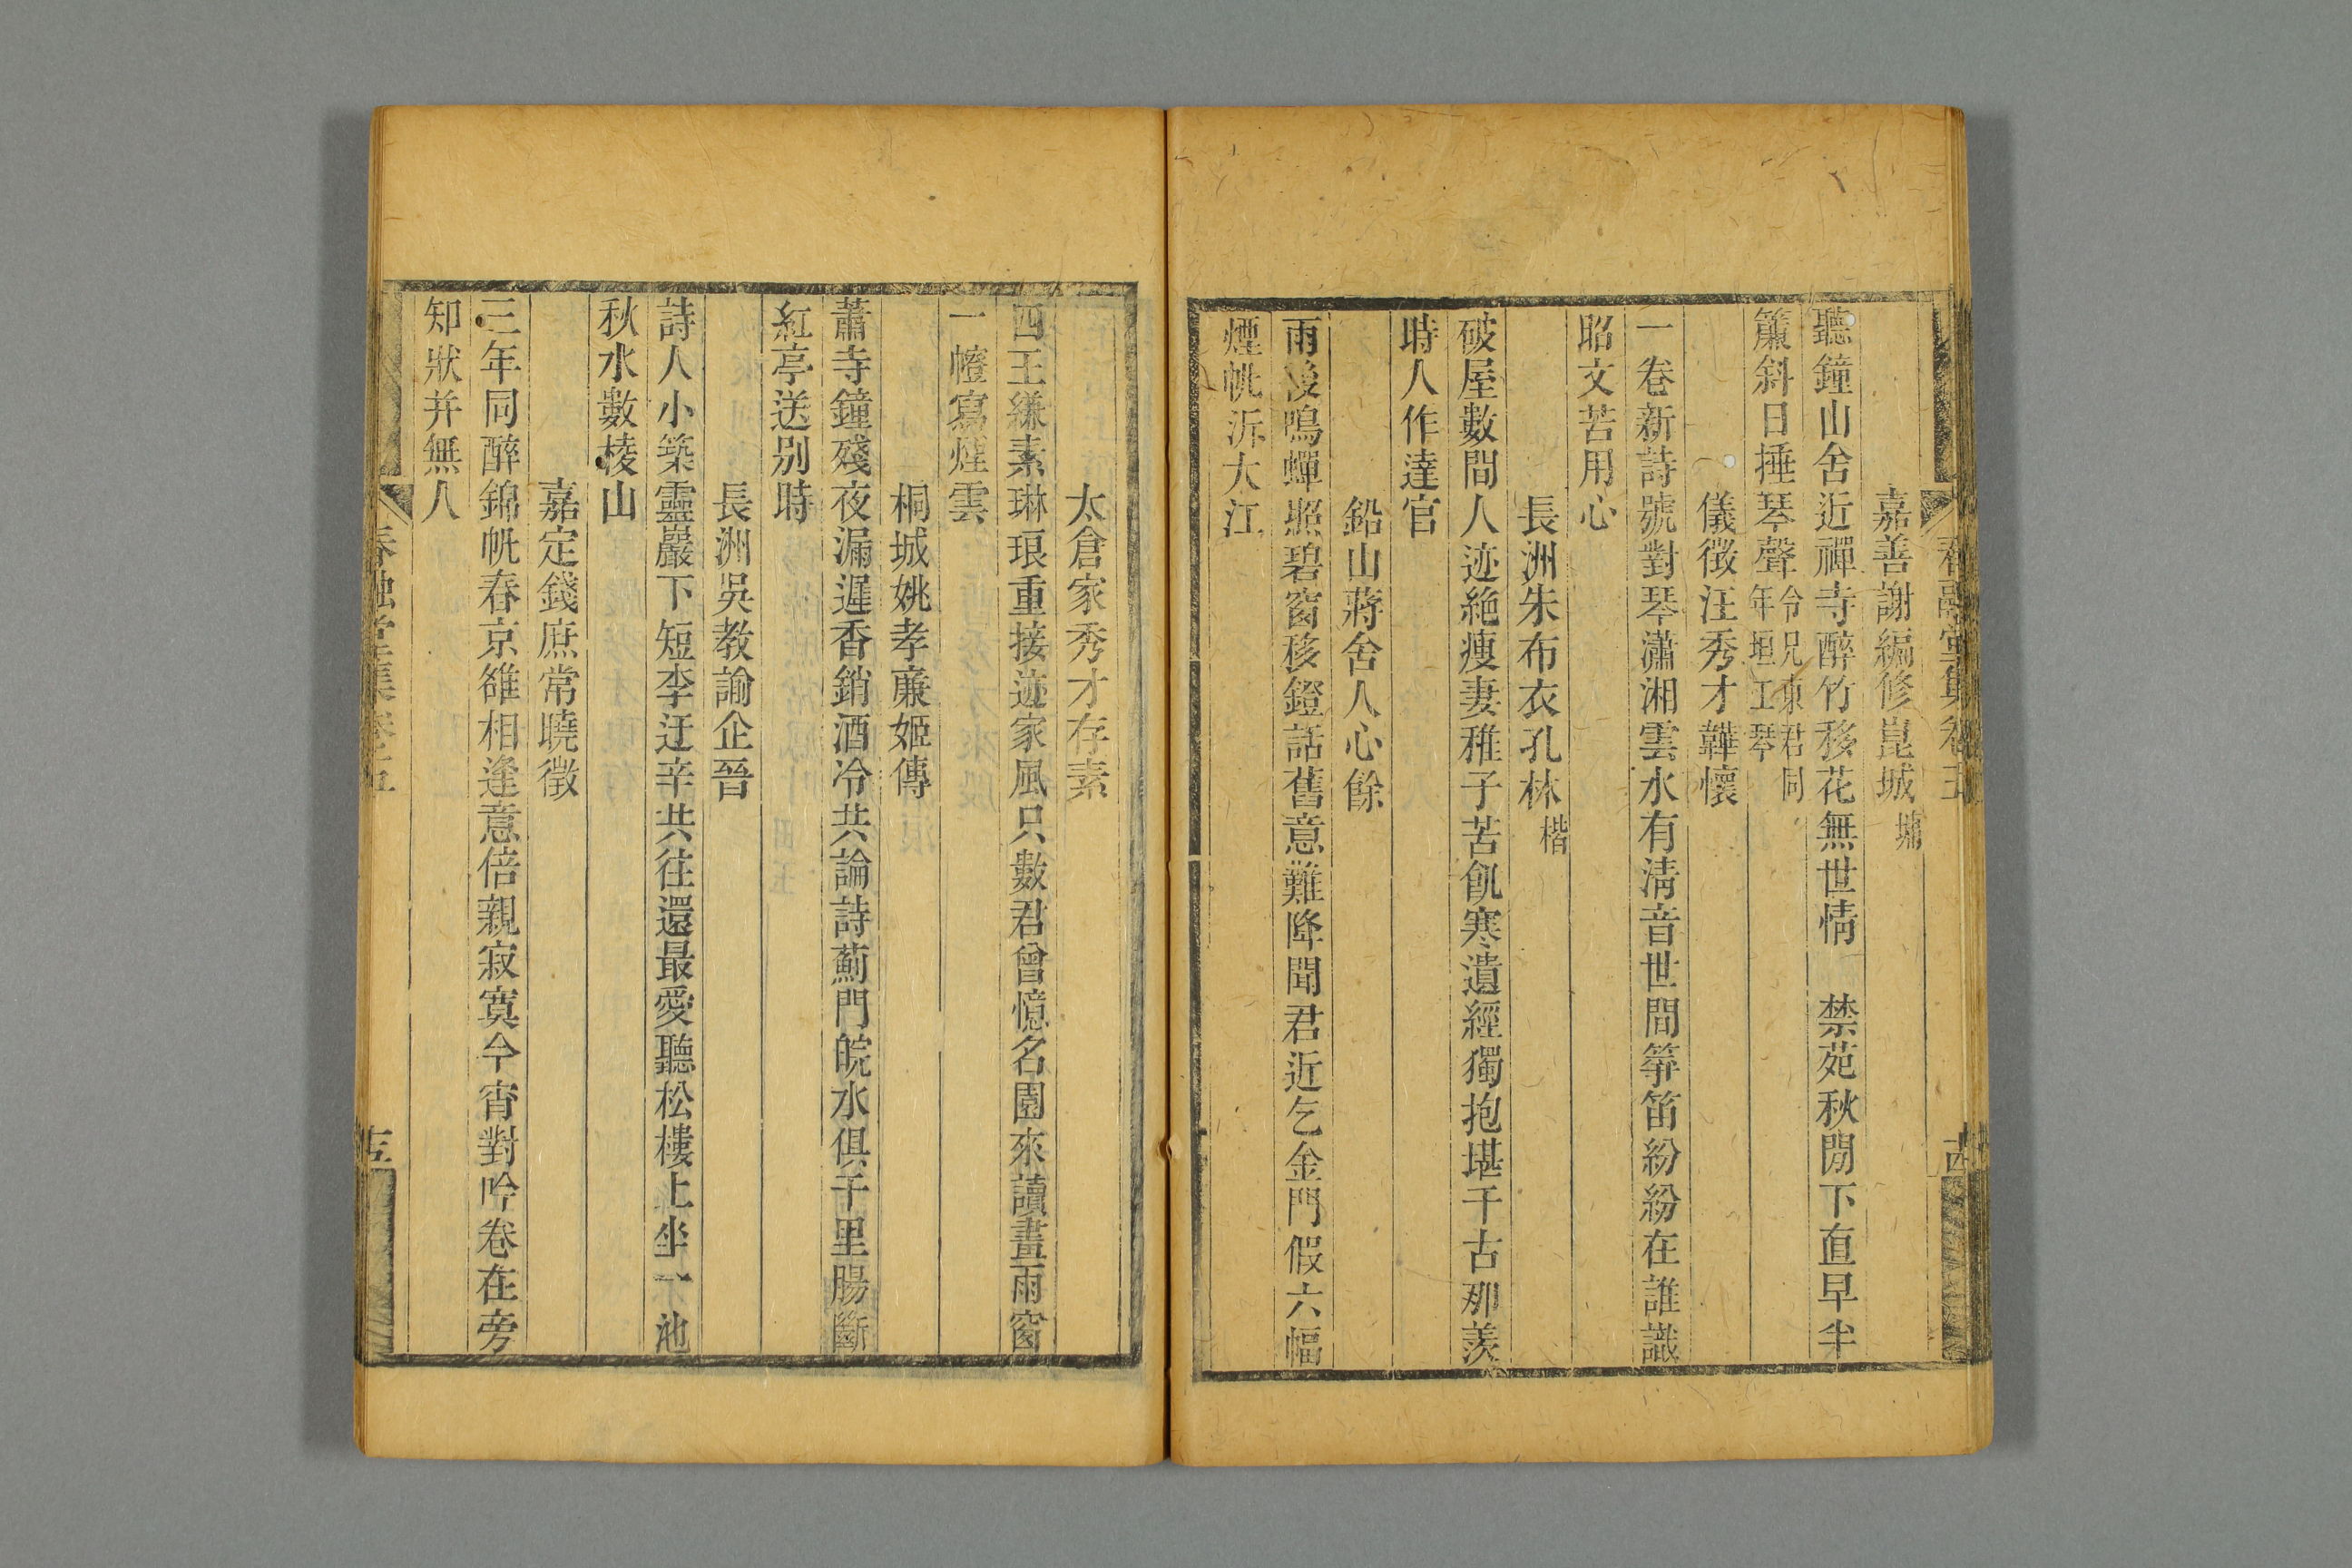 春融堂集卷五
嘉善謝編修崑城墉
聽鐘山舍近禪寺醉竹移花無世情　禁苑秋閒下直早半
簾斜日捶琴聲令兄東君同年垣工琴
儀徵汪秀才韡懷
一卷新詩號對琴瀟湘雲水有淸音世間箏笛紛紛在誰識
昭文苦用心
長洲朱布衣孔林楷
破屋數間人迹絶瘦妻稚子苦飢寒遺經獨抱堪千古那羨
時人作達官
鉛山蔣舍人心餘
雨後鳴蟬照碧窗移鐙話舊意難降聞君近乞金門假六幅
煙帆泝大江
太倉家秀才存素
四王縑素琳琅重接迹家風只數君曾憶名園來讀畫雨窗
一㡧寫煙雲
桐城姚孝廉姬傳
蕭寺鐘殘夜漏遲香銷酒冷共論詩薊門皖水俱千里腸斷
紅亭送别時
長洲吳教諭企晉
詩人小築靈巖下短李迂辛共往還最愛聽松樓上坐一池
秋水數棱山
嘉定錢庶常曉徵
三年同醉錦帆春京雒相逢意倍親寂寞今宵對吟卷在旁
知狀并無人
春融堂集卷五